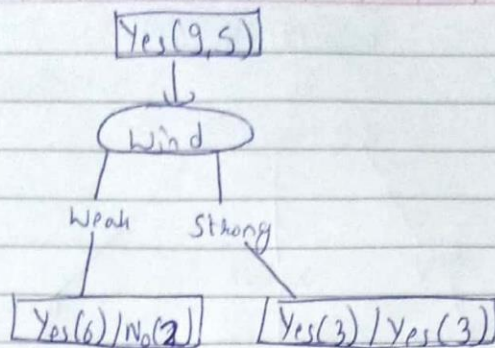 Yes(9,5)
Wind
Weak Strong
Yes(6)/No(2) Yes(3)/Yes(3)